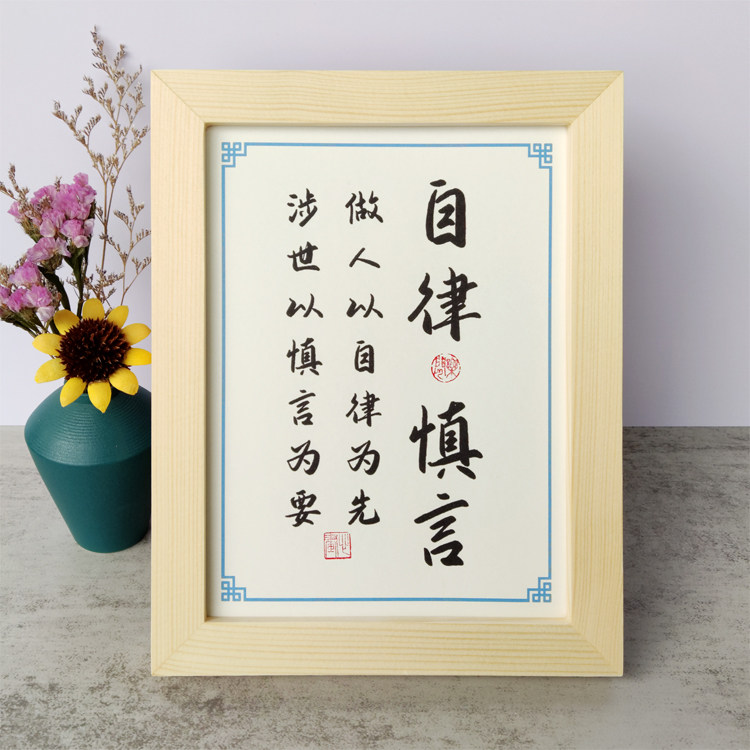 自律
慎言
做人以自律为先
涉世以慎言为要